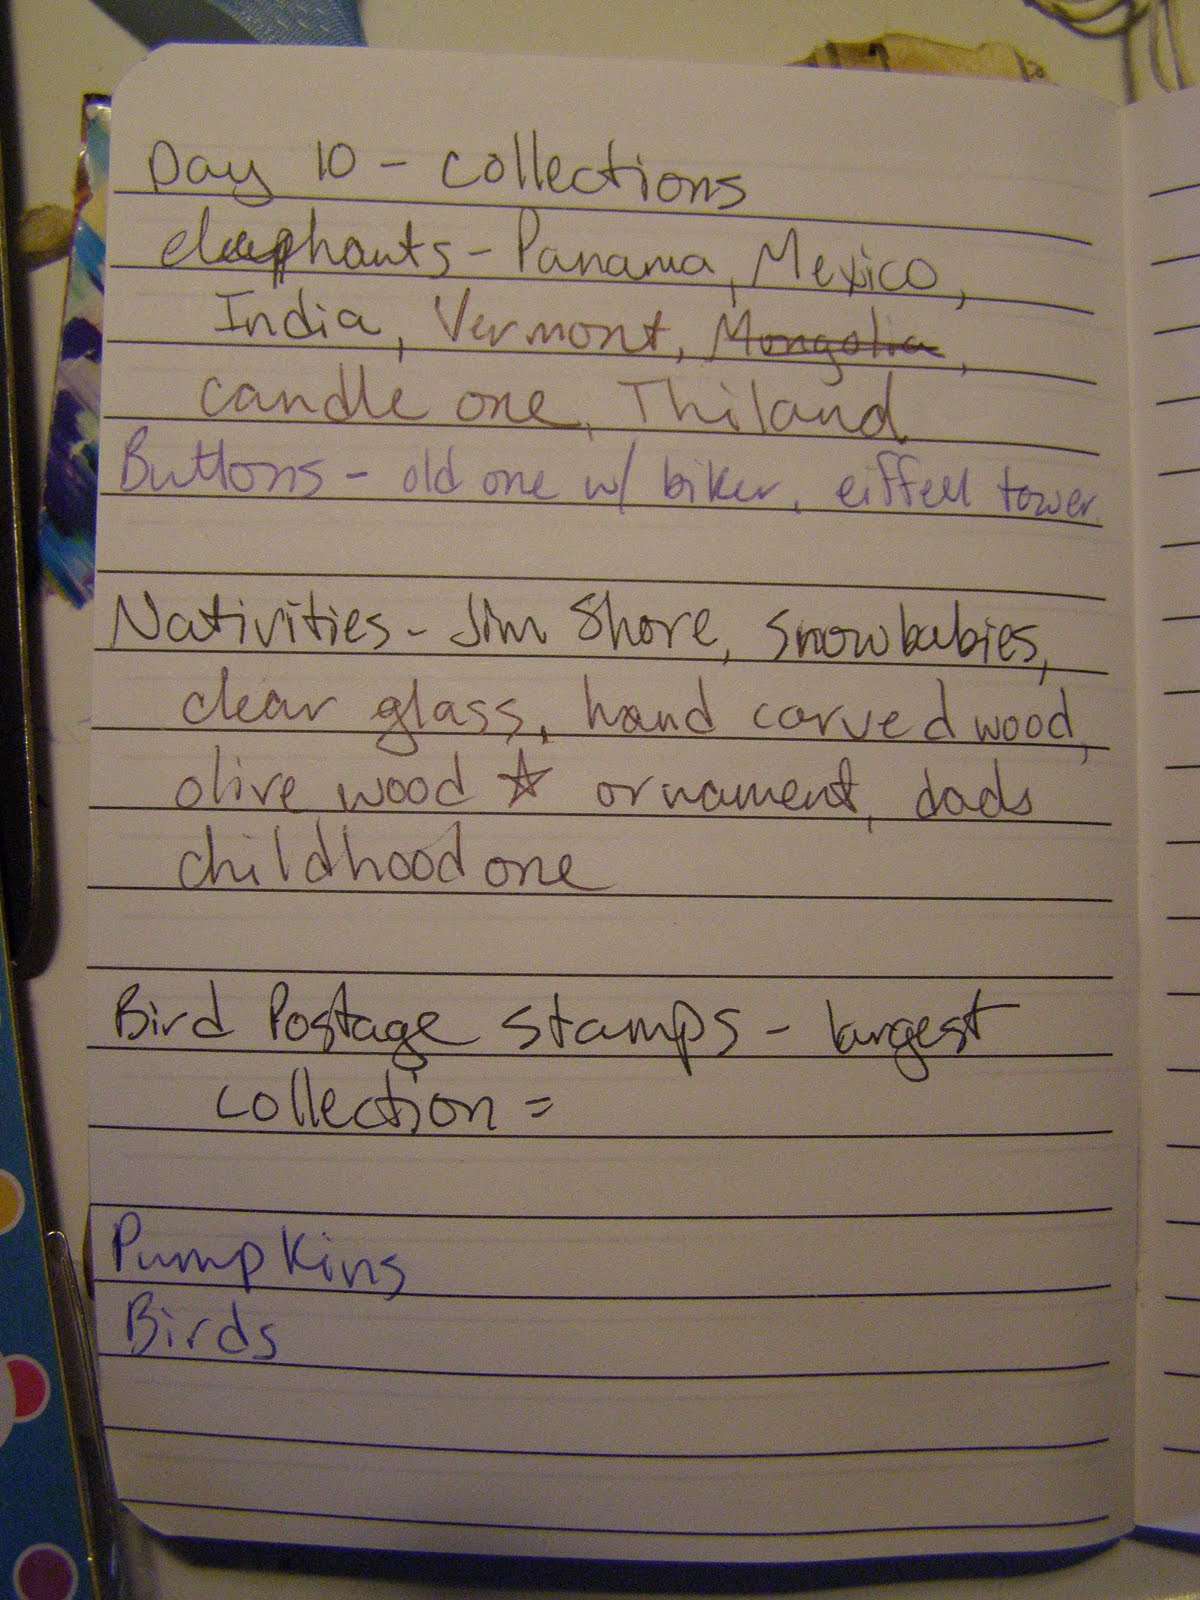 Day 10 - Collections
elephants - Panama, Mexico,
India, Vermont, Mongolia,
candle one, Thiland
Buttons - old one w/ biker, eiffell tower.
Nativities - Jim Shore, Snowbabies,
clear glass, hand carved wood,
olive wood ☆ ornament, dads
childhood one
Bird Postage stamps - largest
collection =
Pumpkins
Birds